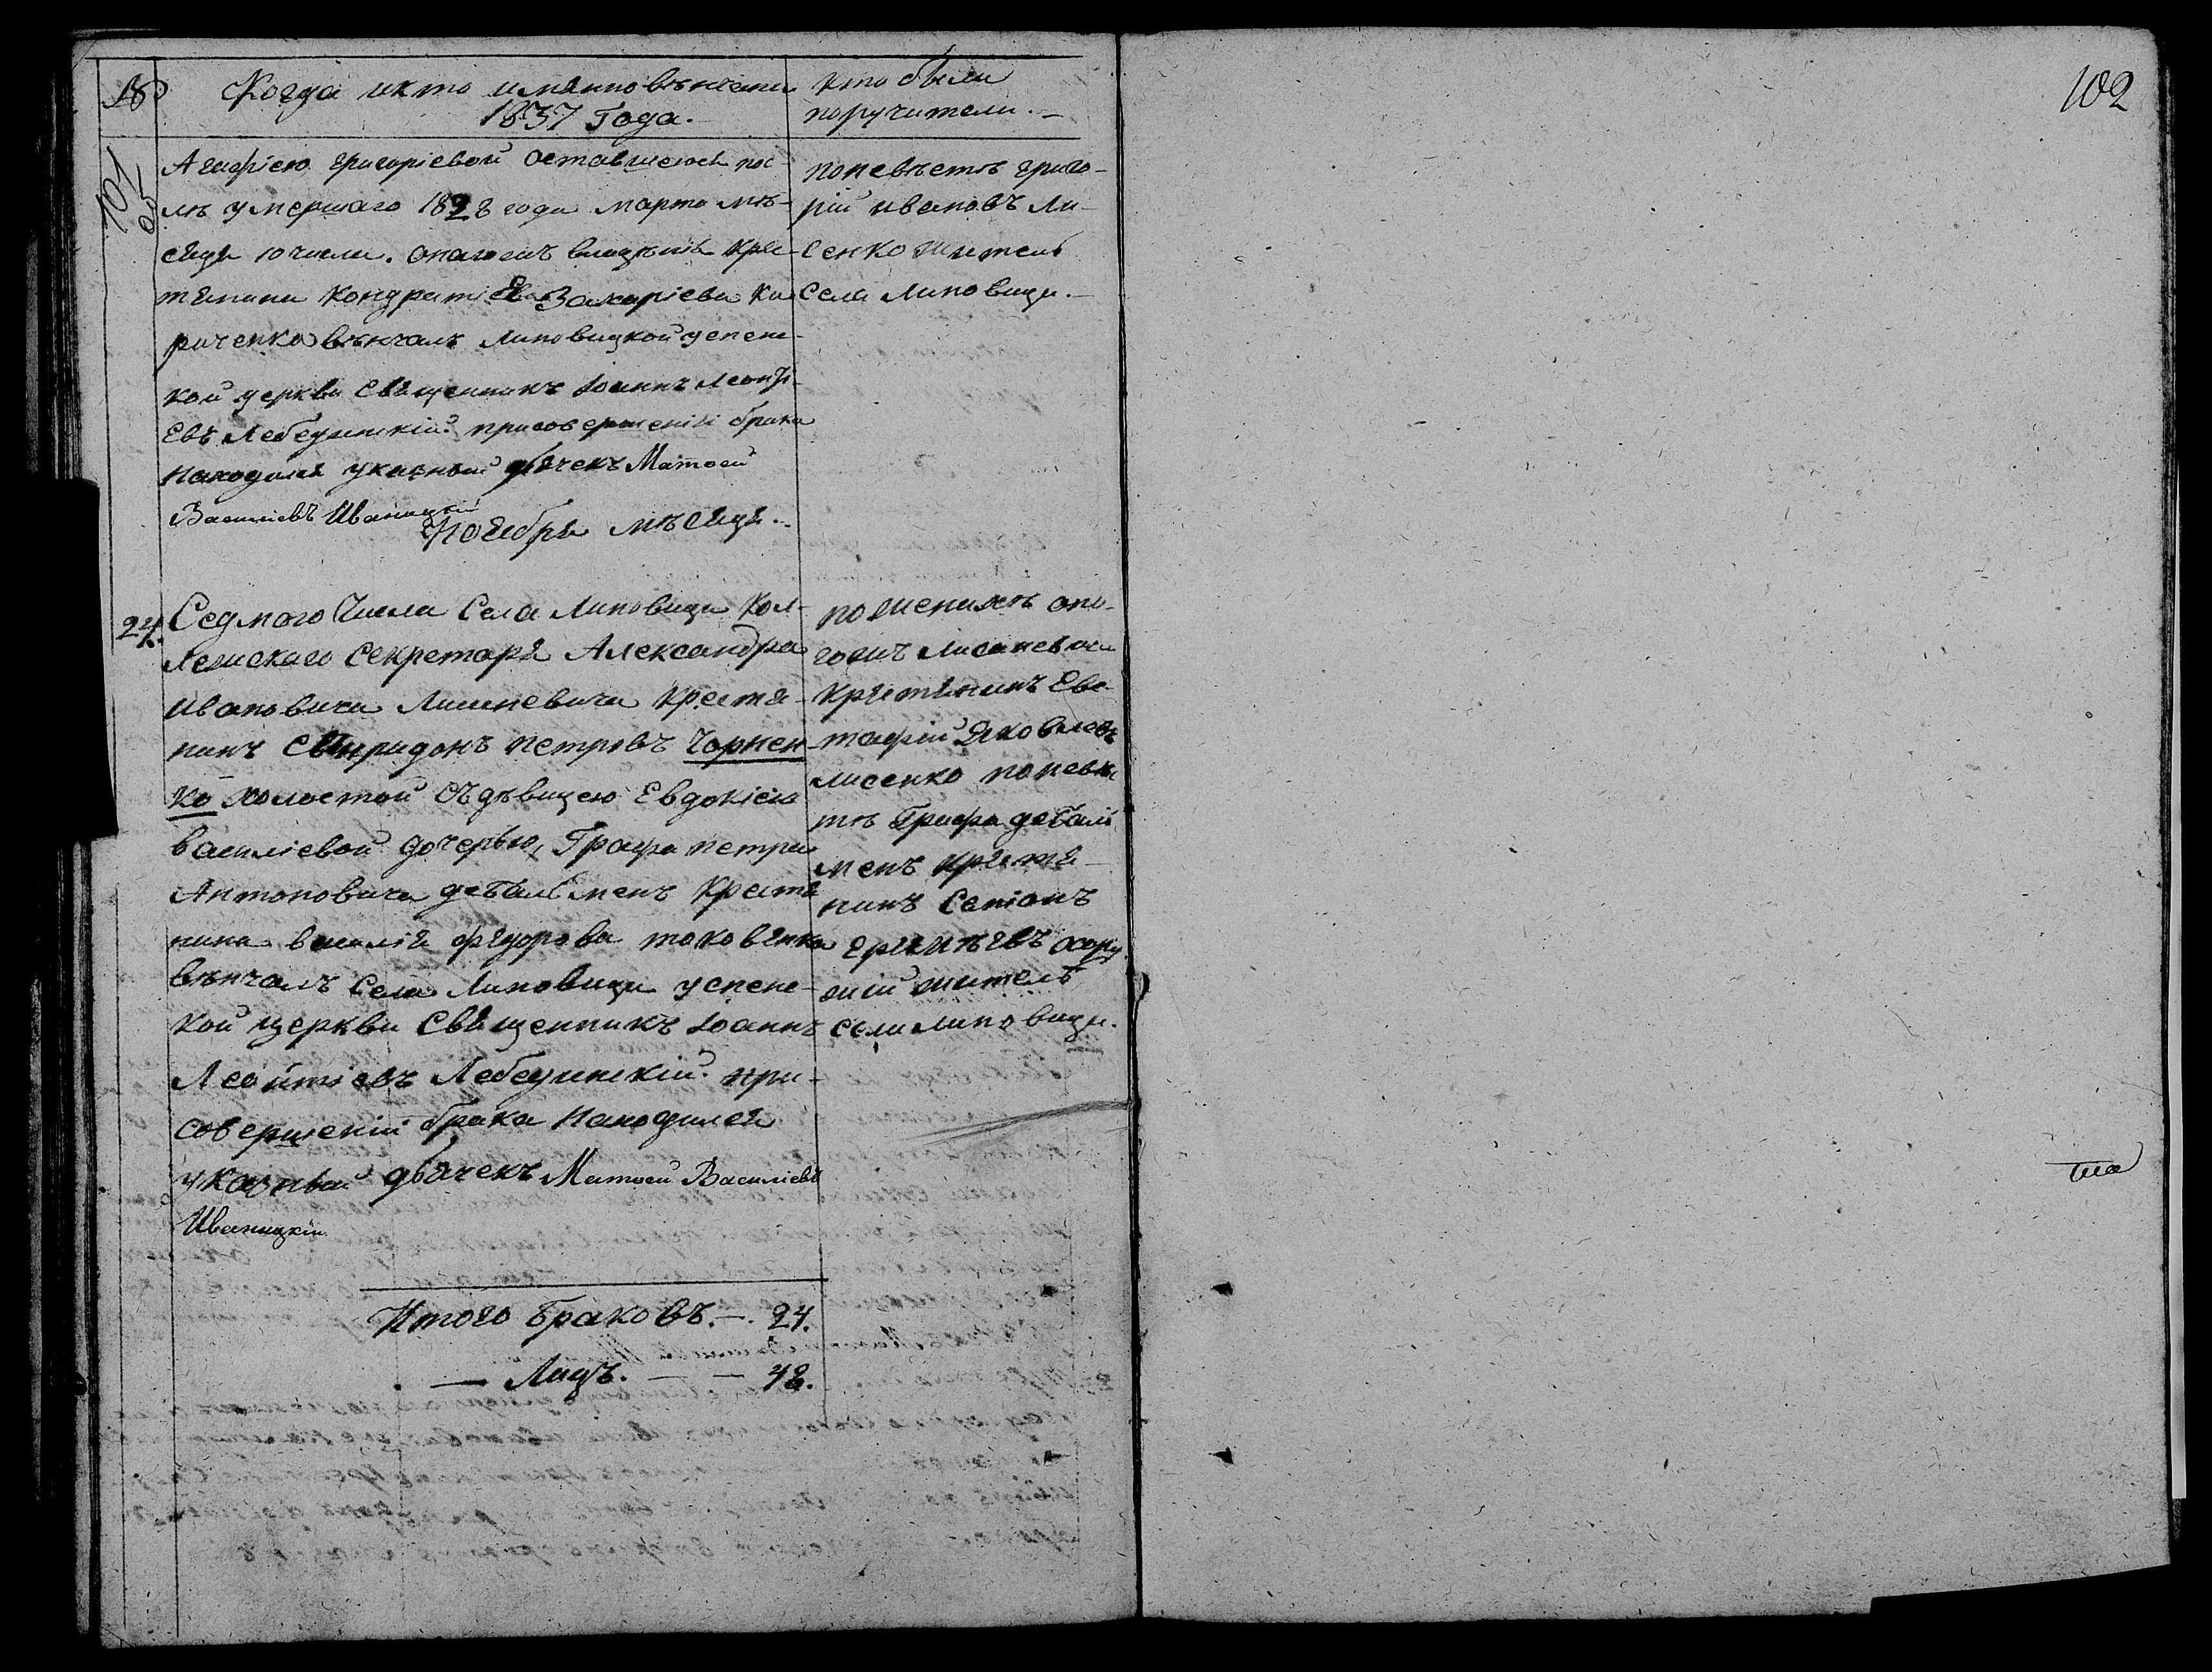 18
Когда и кто имянно венчаны
1837 Года.
кто были
поручители.
101
об
Агафіею Григоріевой оставшеюся пос
лѣ умершаго 1828 года марта мѣ-
сяца 10 числа. Онагожъ владѣнія крес
тянина Кондратіева Захаріева Ки
риченка вѣнчалъ Липовицкой успенс
кой церкви Священникъ Іоаннъ Леонті
евъ Лебединскій. при совершеніи брака
находился указный дьячекъ Матѳей
Василіевъ Иваницкій
по невѣстѣ Григо-
рій Ивановъ Ли-
сенко житель
Села Липовици.
Ноября мѣсяца.
24.
Седмого Числа Села Липовици Кол-
лежскаго Секретаря Александра
Ивановича Лисаневича крестя-
нинъ Свиридонъ Петровъ Чорнен
ко холостой съ дѣвицею Евдокіею
василіевой дочерью, Графа петра
Антоновича дебальменъ крестя
нина василія федорова
вѣнчалъ Села Липовици успенс-
кой церкви Священникъ Іоаннъ
Леонтіевъ Лебединскій. при-
совершеніи брака находился
указный дьячекъ Матѳей Василіевъ
Иваницкій
по женихѣ она-
гожъ Лисаневича
крестянинъ Евс
тафій Яковлевъ
лисенко по невѣс
тѣ Графа дебаль
менъ крестя-
нинъ
житель
села липовици.
Итого браковъ. — 24.
— Лицъ. — — 48.
102